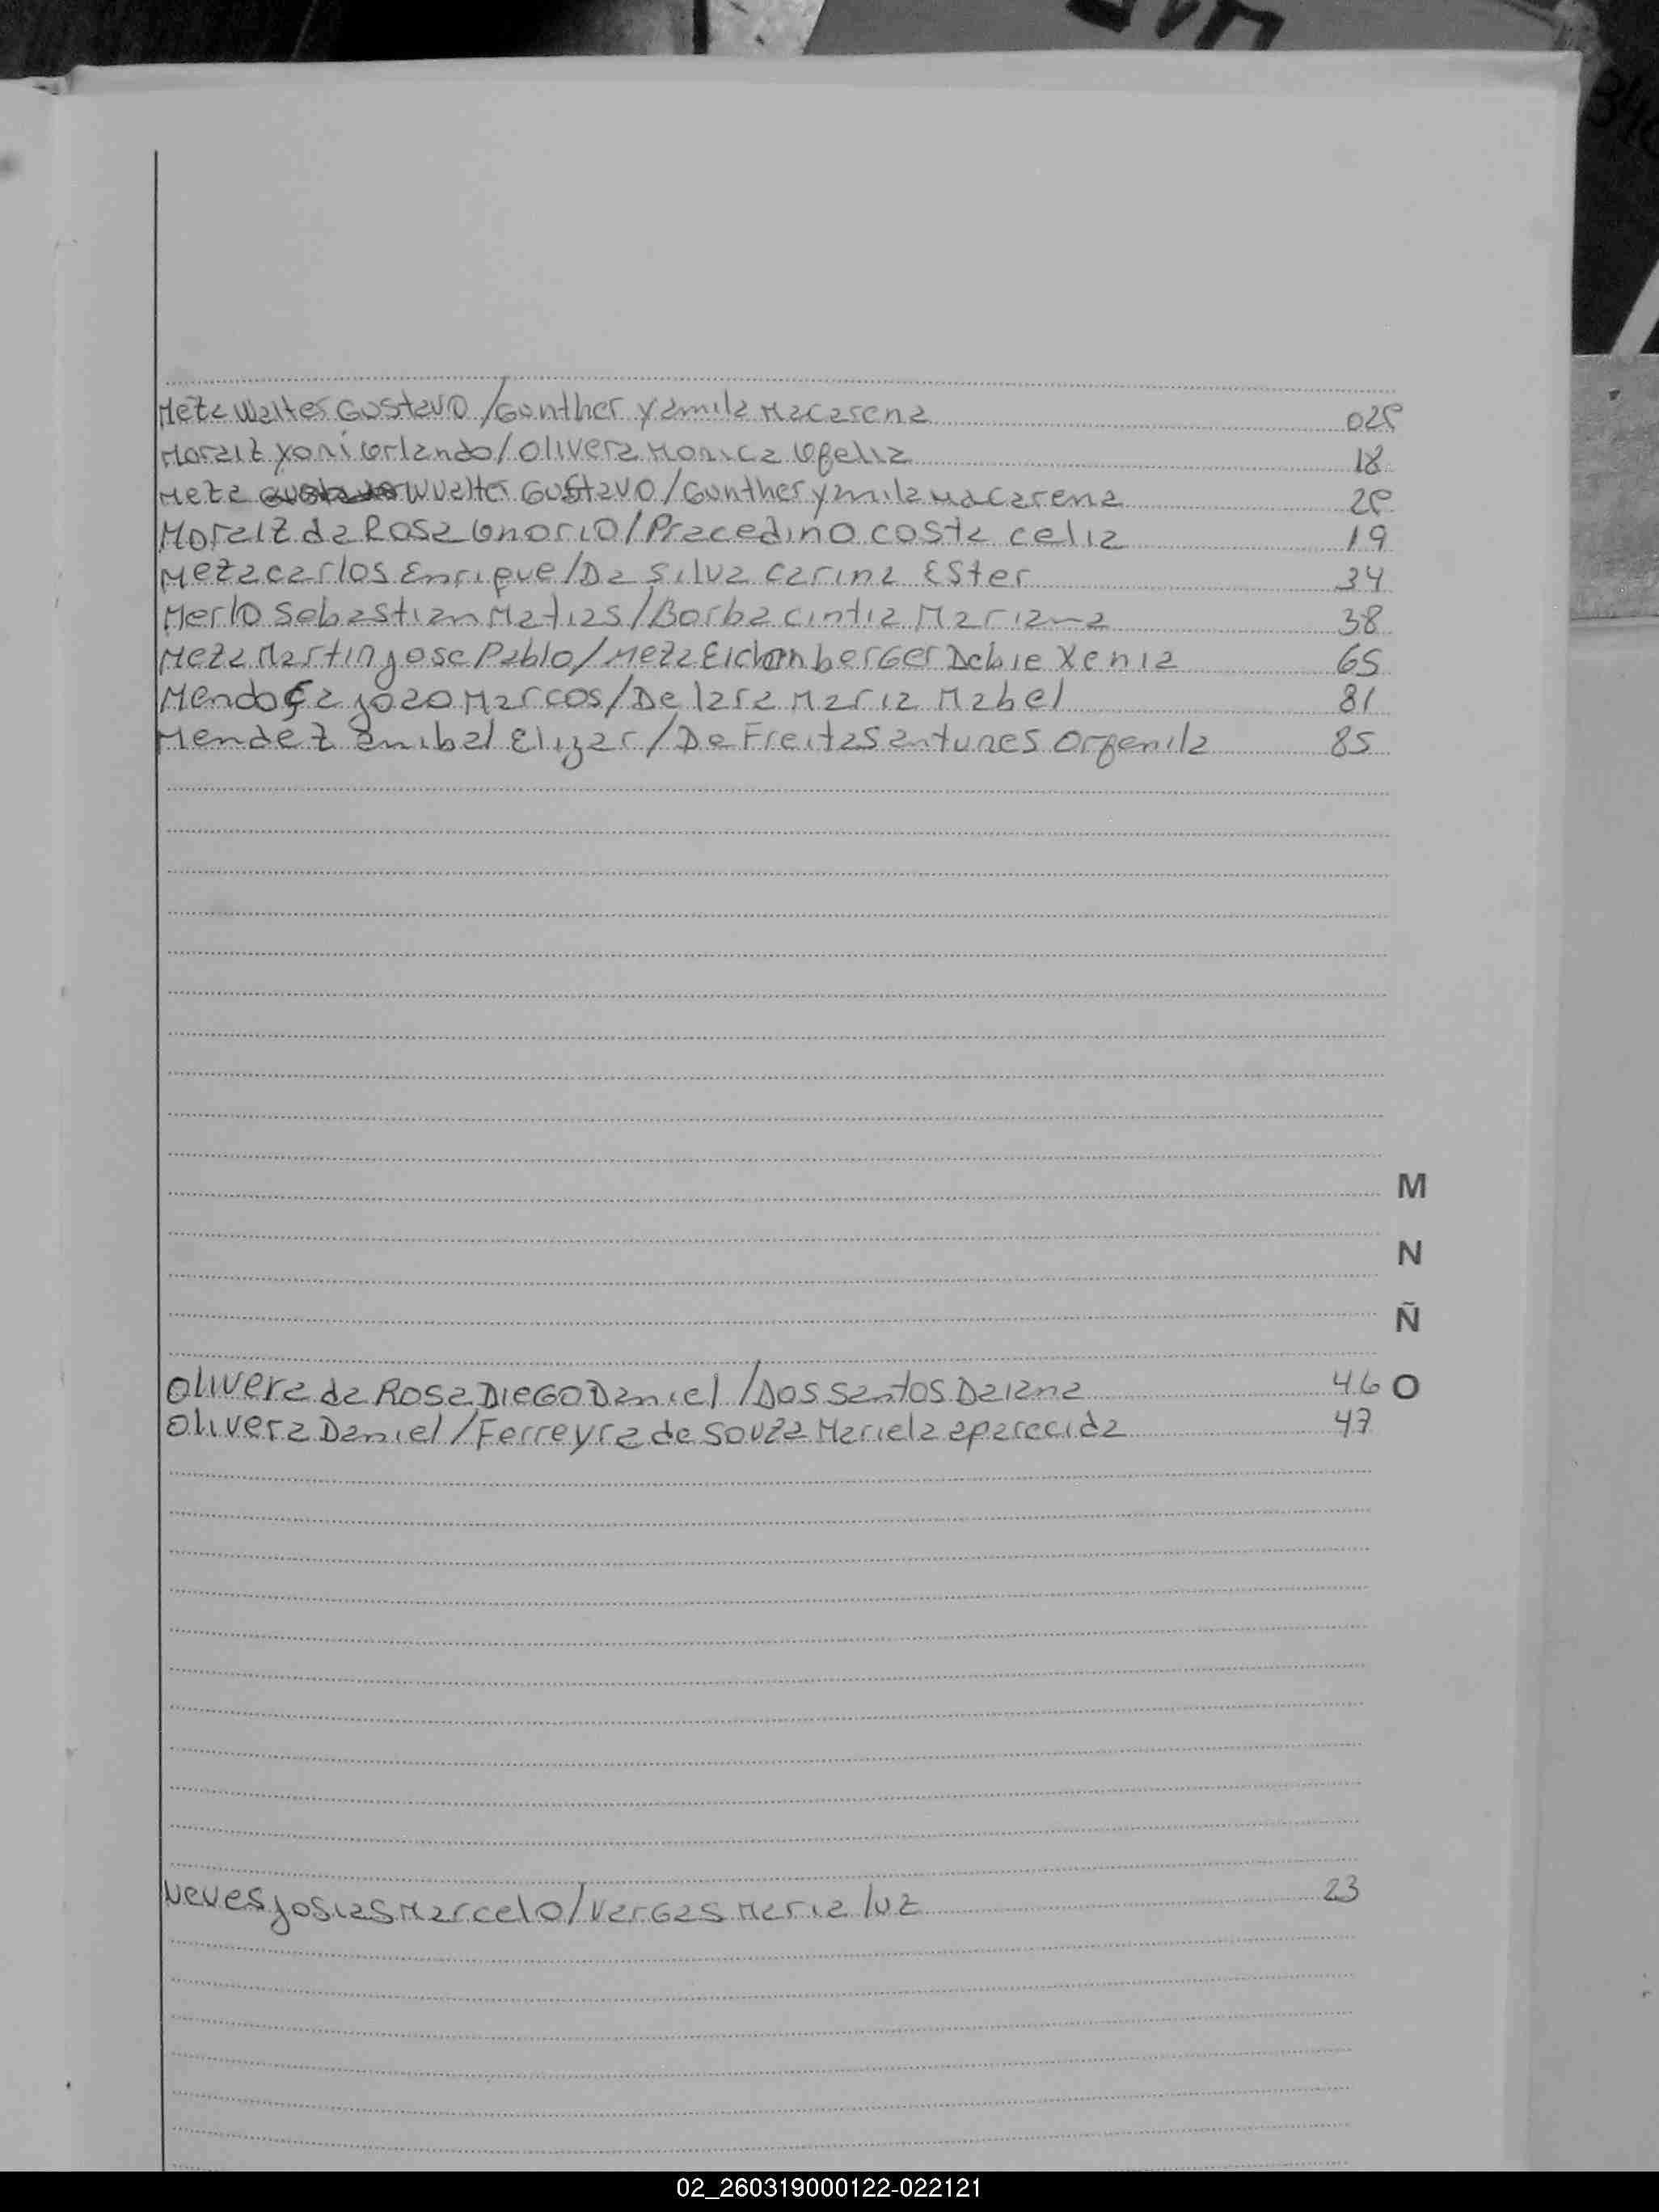 Meza Walter Gustavo / Gunther Yamila Macarena 02
Moraiz Yoni Orlando / Olivera Monica Ofelia 18
Meza Wualter Gustavo / Gunther Yamila Macarena
Moraiz da Rosa Onorio / Pracedino Costa Celia 19
Meza Carlos Enrique / Da Silva Carina Ester 34
Merlo Sebastian Matias / Borba Cintia Mariana 38
Meza Martin Jose Pablo / Meza Xenia 65
Mendoça Joao Marcos / De lara Maria Mabel 81
Mendez anibal Elizar / De Freitas antunes Orfenila 85
M
N
Ñ
Olivera da Rosa DIEGO Daniel / Dos Santos Daiana 46 O
Olivera Daniel / Ferreyra de Souza Mariela aparecida 47
Neves Josias Marcelo / Vargas Maria luz 23
02_260319000122-022121